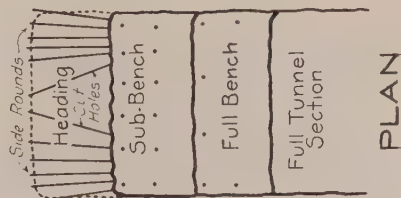 Side Rounds
Heading
Cut
Holes
Sub-Bench
Full Bench
Full Tunnel
Section
PLAN